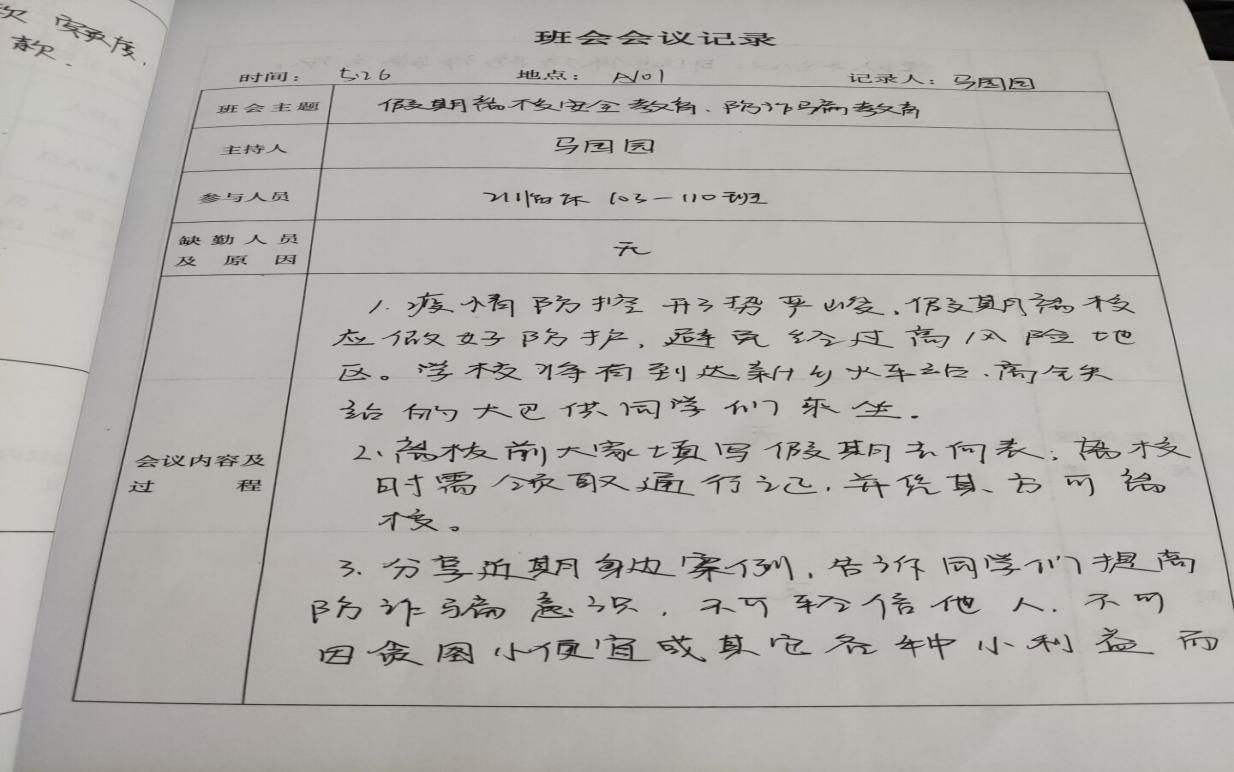 次
高度,
款.
班会会议记录
时间: 5.26 地点: A101 记录人: 马园园
班会主题 假期离校安全教育、防诈骗教育
主持人 马园园
参与人员 211 103—110班
缺勤人员 无
及原因
1. 疫情防控形势严峻,假期离校
应做好防护,避免经过高风险地
区。学校将有到达新乡火车站、高铁
站的大巴供同学们乘坐。
会议内容及
过程
2. 离校前大家填写假期去向表;离校
时需领取通行证,并凭其方可离
校。
3. 分享近期身边案例,告诉同学们提高
防诈骗意识,不可轻信他人.不可
因贪图小便宜或其它各种小利益而